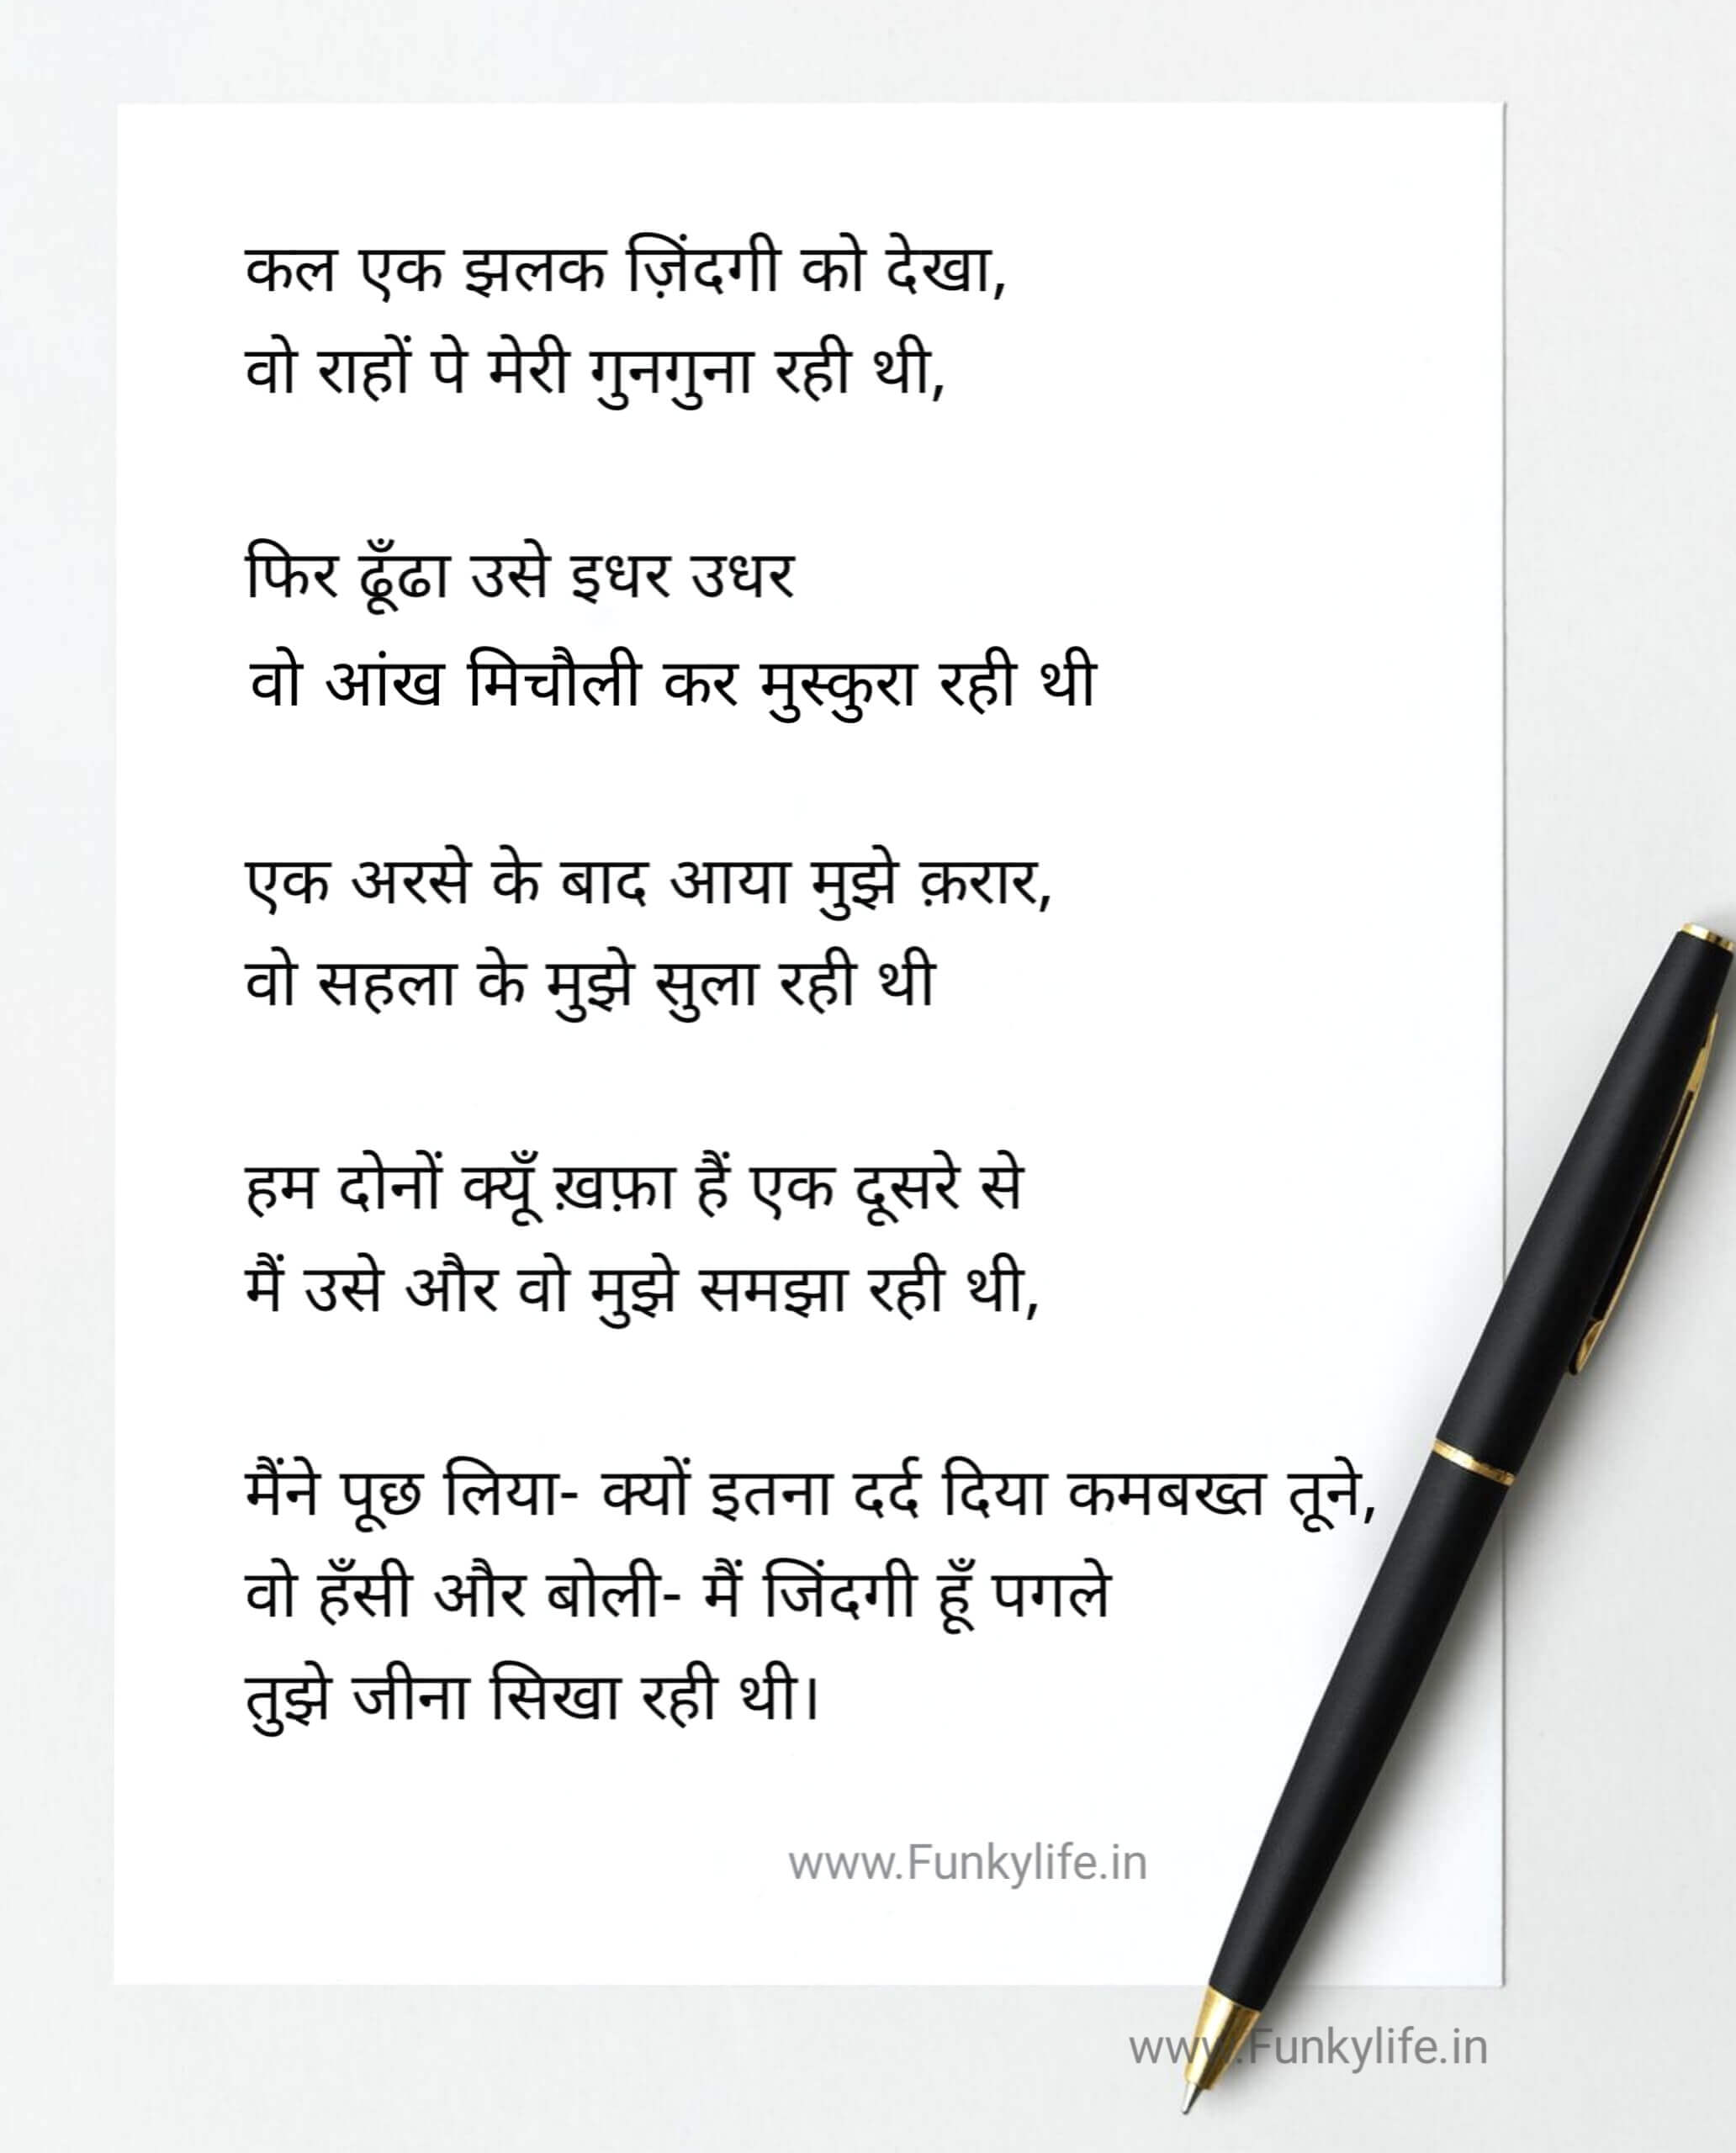 कल एक झलक ज़िंदगी को देखा,
वो राहों पे मेरी गुनगुना रही थी,
फिर ढूँढा उसे इधर उधर
वो आंख मिचौली कर मुस्कुरा रही थी
एक अरसे के बाद आया मुझे क़रार,
वो सहला के मुझे सुला रही थी
हम दोनों क्यूँ ख़फ़ा हैं एक दूसरे से
मैं उसे और वो मुझे समझा रही थी,
मैंने पूछ लिया- क्यों इतना दर्द दिया कमबख्त तूने,
वो हँसी और बोली- मैं जिंदगी हूँ पगले
तुझे जीना सिखा रही थी।
www.Funkylife.in
www.Funkylife.in